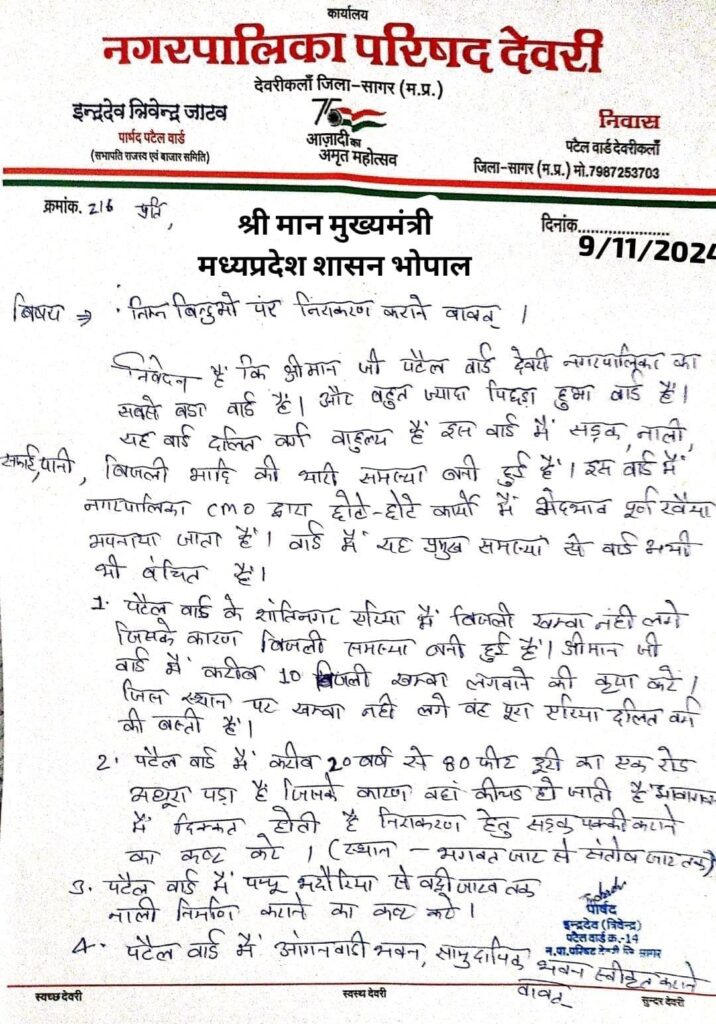 कार्यालय
नगरपालिका परिषद देवरी
देवरीकलाँ जिला-सागर (म.प्र.)
इन्द्रदेव त्रिवेन्द्र जाटव
पार्षद पटैल वार्ड
(सभापति राजस्व एवं बाजार समिति)
75
आज़ादी का
अमृत महोत्सव
निवास
पटेल वार्ड देवरीकलाँ
जिला-सागर (म.प्र.) मो.7987253703
क्रमांक. 216
प्रति,
दिनांक.....................
9/11/2024
श्री मान मुख्यमंत्री
मध्यप्रदेश शासन भोपाल
बिषय ⇒ निम्न बिन्दुओ पर निराकरण कराने बावत् ।
निवेदन है कि श्रीमान जी पटैल वार्ड देवरी नगरपालिका का
सबसे बडा वार्ड है। और बहुत ज्यादा पिछड़ा हुआ वार्ड है।
यह वार्ड दलित वर्ग बाहुल्य है इस वार्ड में सड़क, नाली,
सफाई, पानी, बिजली आदि की भारी समस्या बनी हुई है। इस वार्ड में
नगरपालिका CMO द्वारा छोटे-छोटे कार्यो में भेदभाव पूर्ण रवैया
अपनाया जाता है। वार्ड में यह प्रमुख समस्या से वार्ड अभी
भी वंचित है।
1. पटैल वार्ड के शांतिनगर एरिया में बिजली खम्बा नही लगे
जिसके कारण बिजली समस्या बनी हुई है। श्रीमान जी
वार्ड में करीब 10 बिजली खम्बा लगवाने की कृपा करे।
जिस स्थान पर खम्बा नही लगे वह पूरा एरिया दलित वर्ग
की बस्ती है।
2. पटैल वार्ड में करीब 20 वर्ष से 80 फीट दूरी का एक रोड
अधूरा पड़ा है जिसके कारण वहां कीचड हो जाती है आवागमन
में दिक्कत होती है निराकरण हेतु सड़क पक्की कराने
का कष्ट करे। (स्थान - भगवत जाट से संतोष जाट तक)
3. पटैल वार्ड में पप्पू भदौरिया से जाटव तक
नाली निर्माण कराने का कष्ट करे।
पार्षद
इन्द्रदेव (त्रिवेन्द्र)
पटेल वार्ड क.-14
न.पा.परिषद देवरी जि सागर
4. पटैल वार्ड में आंगनवाडी भवन, सामुदायिक भवन स्वीकृत कराने
बावत्
स्वच्छ देवरी
स्वस्थ देवरी
सुन्दर देवरी